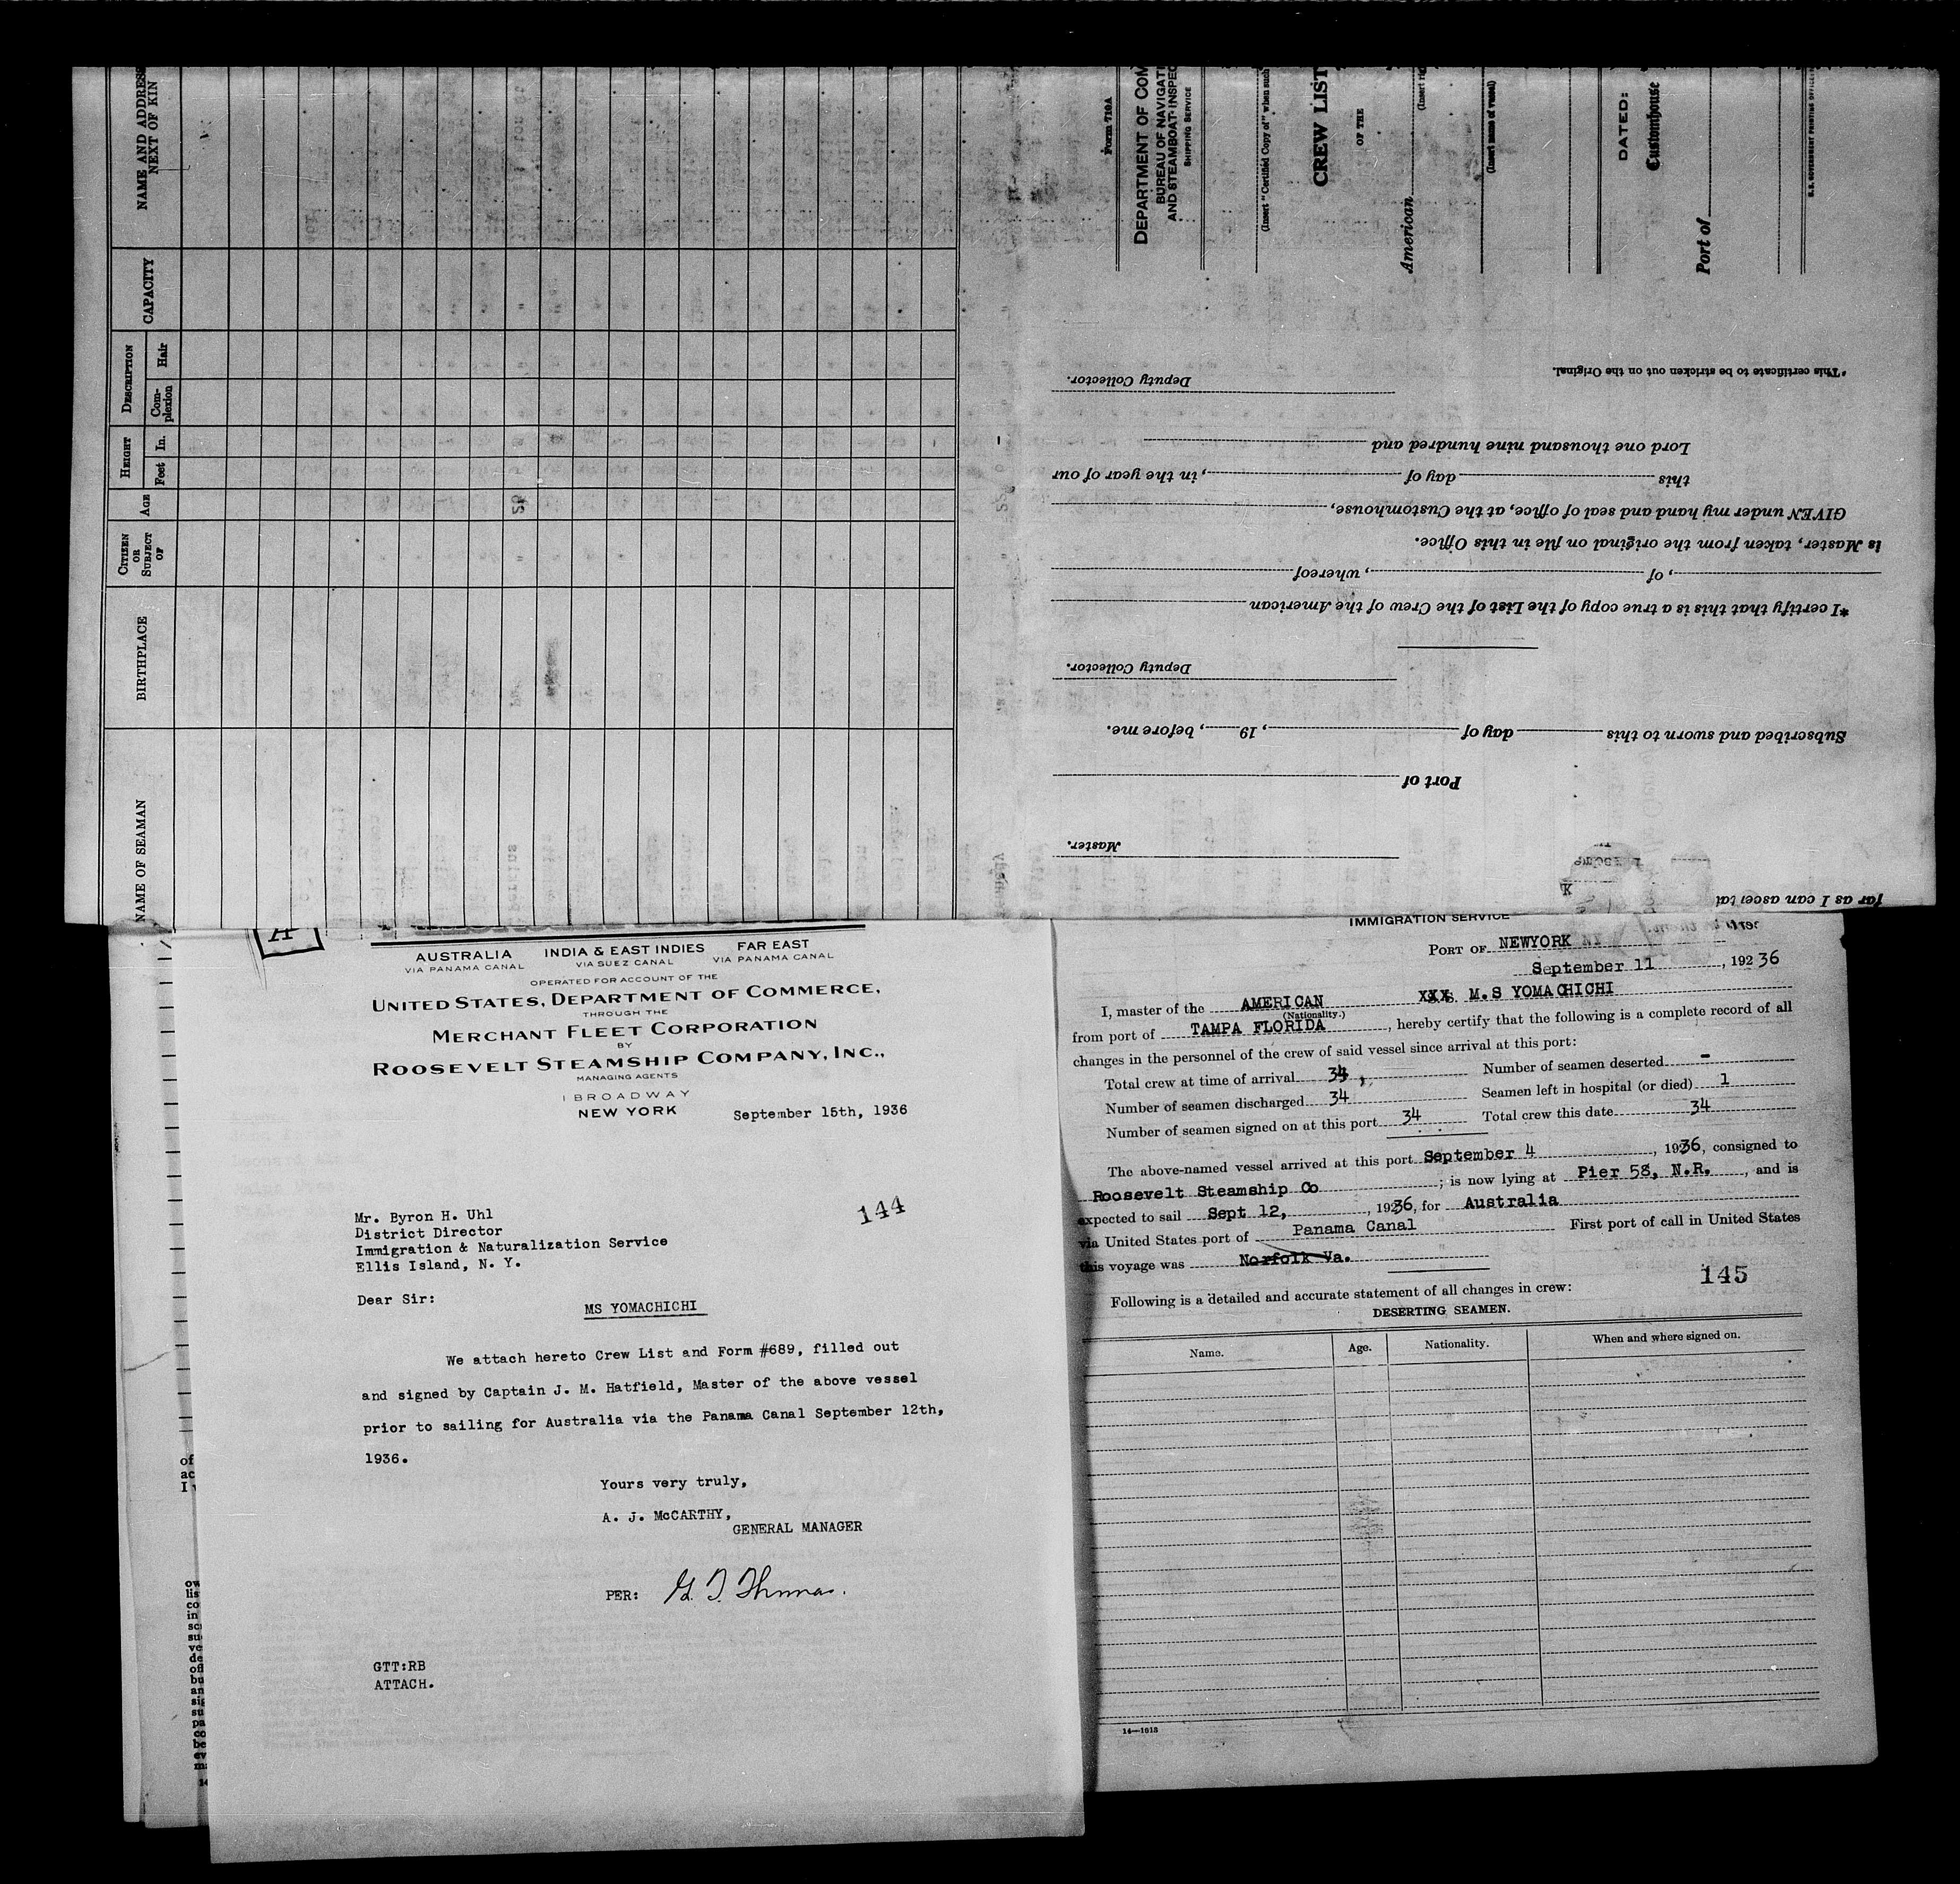 NAME AND ADDRESS
NEXT OF KIN
CAPACITY
DESCRIPTION
Hair
Com-
plexion
HEIGHT
In.
Feet
AGE
CITIZEN
OR
SUBJECT
OF
BIRTHPLACE
NAME OF SEAMAN
Form 710A
DEPARTMENT OF COM
BUREAU OF NAVIGATI
AND STEAMBOAT INSPEC
SHIPPING SERVICE
(Insert "Certified Copy of" when such
CREW LIST
OF THE
American
(Insert rig
(Insert name of vessel)
DATED:
Customhouse
Port of
U.S. GOVERNMENT PRINTING OFFICE
far as I can ascertai
Master.
Port of
Subscribed and sworn to this day of , 19 , before me.
Deputy Collector.
*I certify that this is a true copy of the List of the Crew of the American
, of , whereof
is Master, taken from the original on file in this Office.
GIVEN under my hand and seal of office, at the Customhouse,
this day of , in the year of our
Lord one thousand nine hundred and
Deputy Collector.
*This certificate to be stricken out on the Original.
AUSTRALIA INDIA & EAST INDIES FAR EAST
VIA PANAMA CANAL VIA SUEZ CANAL VIA PANAMA CANAL
OPERATED FOR ACCOUNT OF THE
UNITED STATES, DEPARTMENT OF COMMERCE,
THROUGH THE
MERCHANT FLEET CORPORATION
BY
ROOSEVELT STEAMSHIP COMPANY, INC.,
MANAGING AGENTS
1 BROADWAY
NEW YORK September 15th, 1936
144
Mr. Byron H. Uhl
District Director
Immigration & Naturalization Service
Ellis Island, N. Y.
Dear Sir:
MS YOMACHICHI
We attach hereto Crew List and Form #689, filled out
and signed by Captain J. M. Hatfield, Master of the above vessel
prior to sailing for Australia via the Panama Canal September 12th,
1936.
Yours very truly,
A. J. McCARTHY,
GENERAL MANAGER
PER: G. T. Thomas.
GTT:RB
ATTACH.
IMMIGRATION SERVICE
PORT OF NEWYORK NY
September 11, 192 36
I, master of the AMERICAN XXX M.S YOMACHICHI
(Nationality.)
from port of TAMPA FLORIDA, hereby certify that the following is a complete record of all
changes in the personnel of the crew of said vessel since arrival at this port:
Total crew at time of arrival 34 Number of seamen deserted -
Number of seamen discharged 34 Seamen left in hospital (or died) 1
Number of seamen signed on at this port 34 Total crew this date 34
The above-named vessel arrived at this port September 4, 1936, consigned to
Roosevelt Steamship Co; is now lying at Pier 58, N.R., and is
expected to sail Sept 12, 1936, for Australia
via United States port of Panama Canal First port of call in United States
this voyage was Norfolk Va.
145
Following is a detailed and accurate statement of all changes in crew:
DESERTING SEAMEN.
Name. Age. Nationality. When and where signed on.
14—1613